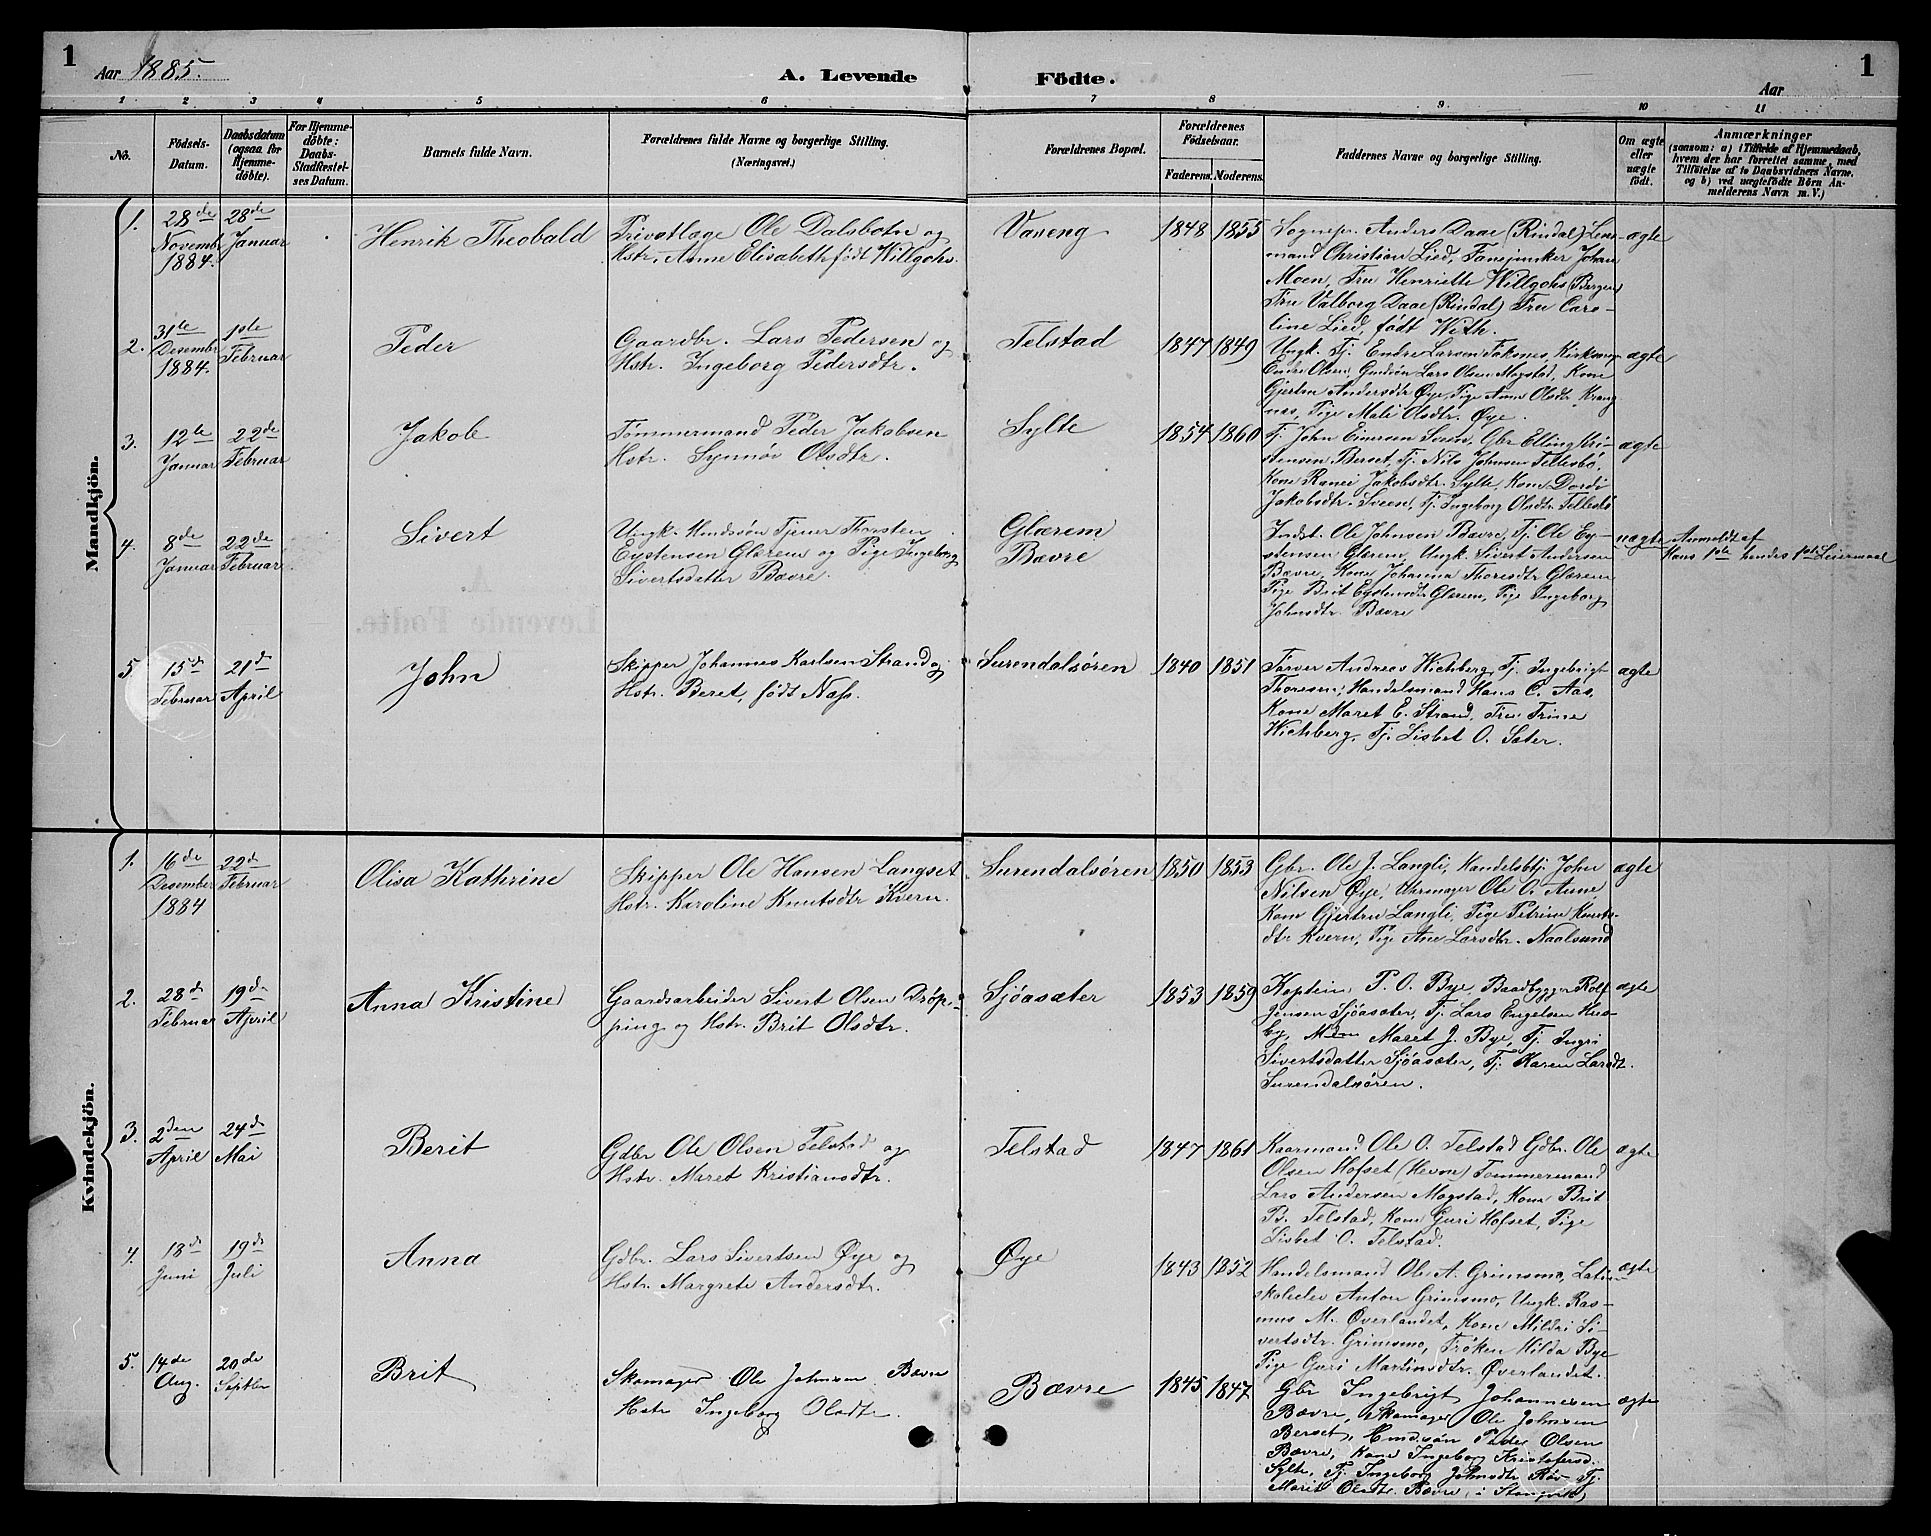 1
Aar 1885.
A. Levende
Födte.
Aar
1
1 2 3 4 5 6 7 8 9 10 11
No.
Födsels-
Datum.
Daabsdatum
(ogsaa for
Hjemme-
döbte).
For Hjemme-
döbte:
Daabs-
Stadfæstel-
ses Datum.
Barnets fulde Navn.
Forældrenes fulde Navne og borgerlige Stilling.
(Næringsvei.)
Forældrenes Bopæl.
Forældrenes
Födselsaar.
Faderens. Moderens.
Faddernes Navne og borgerlige Stilling.
Om ægte
eller
uægte
födt.
Anmærkninger
(saasom: a) i Tilfælde af Hjemmedaab,
hvem der har forrettet samme, med
Tilföielse af to Daabsvidners Navne,
og b) ved uægtefödte Börn An-
melderens Navn m. V.)
Mandkjön.
1.
28de
Novemb.
1884.
28de
Januar
Henrik Theobald
Privatlæge Ole Dalsbotn og
Hstr. Anne Elisabeth født Willgohs.
Vaseng
1848 1855
Sognepr. Anders Daae (Rindal) Lens-
mand Christian Lied, Fanejunker Johan
Moen, Fru Henriette Willgohs (Bergen)
Fru Valborg Daae (Rindal) Fru Caro-
line Lied, født With.
ægte
2.
31te
Desembr
1884.
1ste
Februar
Peder
Gaardbr. Lars Pedersen og
Hstr. Ingeborg Pedersdtr.
Telstad
1847 1849
Ungk. Tj. Endre Larsen Faksnes, Kirksang.
Endre Olsen, Gmdsön Lars Olsen Mogstad, Kone
Gjertru Andersdtr Øye, Pige Anne Olsdtr Krang
nes, Pige Mali Olsdtr. Øye.
ægte
3.
12te
Januar
22de
Februar
Jakob
Tømmermand Peder Jakobsen
Hstr. Synnøv Olsdtr.
Sylte
1854 1860
Tj. John Einersen Sveen, Gbr Elling Kri-
stensen Berset, Tj. Nils Johnsen Tellesbø,
Kone Ranei Jakobsdtr. Sylte Kone Dordi
Jakobsdtr. Sveen, Tj. Ingeborg Olsdtr Tellesbø
ægte
4.
8de
Januar
22de
Februar
Sivert
Ungk. Hmdssön Tjener Thorsten
Eystensen Glærem og Pige Ingeborg
Sivertsdatter Bævre.
Glærem
Bævre
Indst. Ole Johnsen Bævre, Tj. Ole Ey-
stensen Glærem, Ungk. Sivert Andersen
Bævre, Kone Johanna Thoresdtr Glærem
Pige Brit Eystensdtr Glærem, Pige Ingeborg
Johnsdtr. Bævre
uægte
Anmeldt af
Hans 1ste hendes 1ste Leiermaal
5
15d
Februar
21d
April
John
Skipper Johannes Karlsen Strand og
Hstr. Beret, født Næss.
Surendalsøren
1840 1851
Farver Andreas Wichberg, Tj. Ingebrigt
Thoresen, Handelsmand Hans C. Aas,
Kone Maret E. Strand, Fru Trine
Wichberg, Tj. Lisbet O. Sæter.
ægte
Kvindekjön.
1.
16de
Desember
1884
22d
Februar
Olisa Kathrine
Skipper Ole Hansen Langset
Hstr. Karoline Knutsdtr Kvern.
Surendalsøren
1850 1853
Gbr. Ole J. Langli, Handelsbtj. John
Nilsen Øye, Uhrmager Ole O. Aune,
Kone Gjertru Langli, Pige Petrine Knuts-
dtr Kvern, Pige Ane Larsdtr. Naalsund
ægte
2.
28d
Februar
19d
April
Anna Kristine
Gaardsarbeider Sivert Olsen Drøp-
ping og Hstr. Brit Olsdtr.
Sjøasæter
1853 1859
Kaptein P. O. Bye, Baadbygger Rolf
Jensen Sjøasæter, Tj. Lars Engelsen Hus-
by, Mdm Maret J. Bye, Tj. Ingri
Sivertsdatter Sjøasæter, Tj. Karen Larsdt.
Surendalsøren.
ægte
3.
2den
April
24d
Mai
Berit
Gdbr Ole Olsen Telstad og
Hstr. Maret Kristiansdtr.
Telstad
1847 1861
Kaarmand Ole O. Telstad Gdbr. Ole
Olsen Hofset (Hevne) Tømmermand
Lars Andersen Mogstad, Kone Brit
B. Telstad, Kone Guri Hofset, Pige
Lisbet O. Telstad.
ægte
4.
18d
Juni
19d
Juli
Anna
Gdbr. Lars Sivertsen Øye og
Hstr. Margrete Andersdtr.
Øye
1843 1852
Handelsmand Ole A. Grimsmo, Latin-
skoleelev Anton Grimsmo, Ungk. Ras-
mus M. Øverlandet, Kone Mildri Si-
vertsdtr. Grimsmo, Frøken Hilda Bye
Pige Guri Martinsdtr. Øverlandet.
ægte
5.
14de
Aug.
20de
Septbr
Brit
Skomager Ole Johnsen Bævre
Hstr Ingeborg Olsdtr.
Bævre
1845 1847
Gbr Ingebrigt Johannesen
Bævre, Skomager Ole Johnsen
Berset, Hmdssön Peder Olsen
Bævre, Kone Ingeborg Kristofersd.
Sylte, Tj. Ingeborg Johnsdtr Røv- Tj.
Marit Olsdtr. Bævre, i Stangvik
ægte
A.
Levende Fødte.